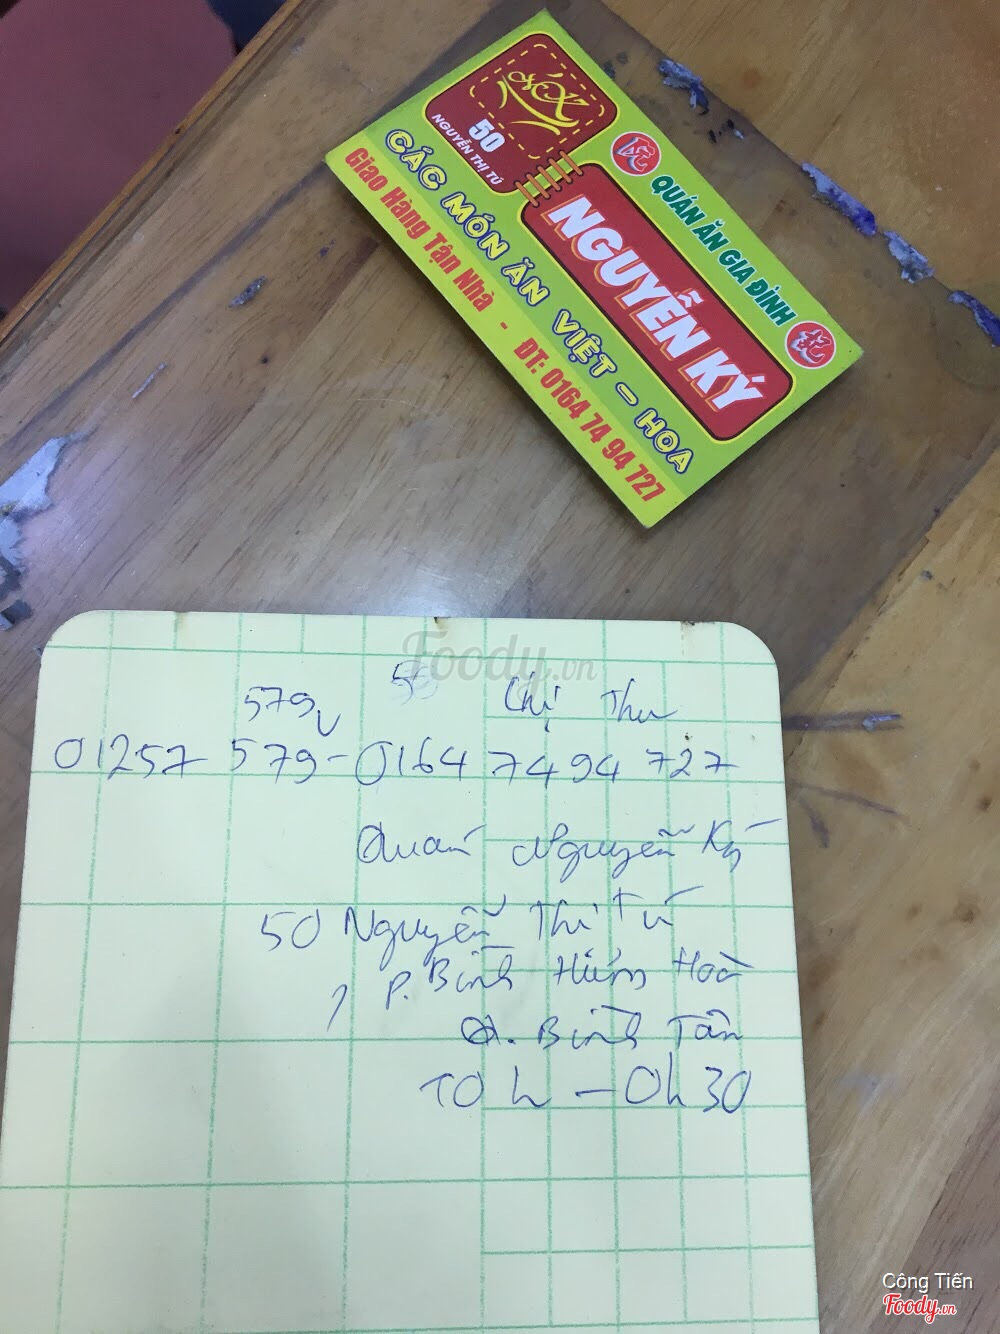 50
NGUYỄN THỊ TÚ
QUÁN ĂN GIA ĐÌNH
NGUYỄN KÝ
CÁC MÓN ĂN VIỆT - HOA
Giao Hàng Tận Nhà - ĐT: 0164 74 94 727
Foody.vn
579 Chị Thu
01257 579 - 0164 7494 727
Quán Nguyễn Ký
50 Nguyễn Thị Tú
P. Bình Hưng Hoà
Q. Bình Tân
10h - 0h30
Công Tiến
Foody.vn